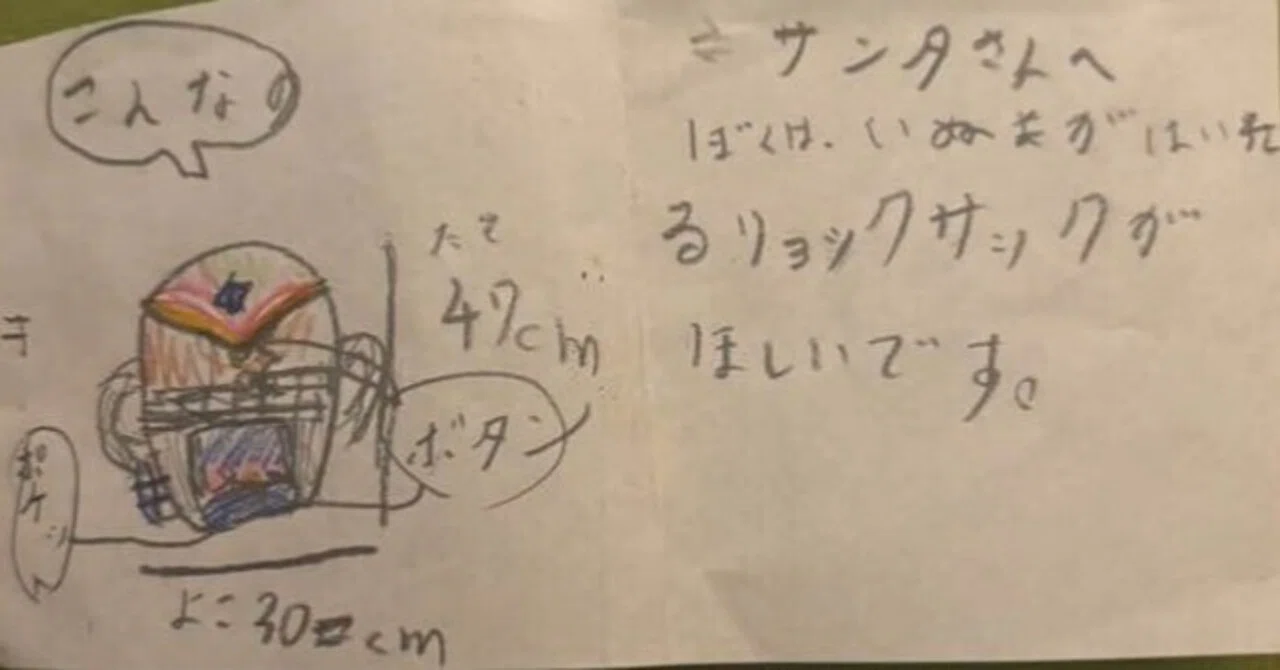 サンタさんへ
ぼくは、いぬまがはいれ
るリョックサックが
ほしいです。
こんなの
たて
47cm
ボタン
ポケット
よこ30cm